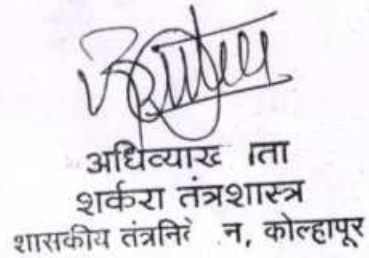 अधिव्याख ाता
शर्करा तंत्रशास्त्र
शासकीय तंत्रनिे न, कोल्हापूर